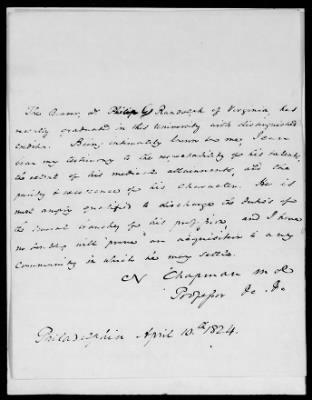 The Bearer, Dr Philip G Randolph of Virginia, has
recently graduated in this University with distinguished
credit. Being intimately known to me, I can
bear my testimony to the respectability of his talents,
the extent of his medical attainments, and the
purity & excellence of his character. He is
most amply qualified to discharge the duties of
the several branches of his profession, and I have
no doubt, will prove an acquisition to any
Community in which he may settle.
N Chapman M D
Professor &c &c
Philadelphia April 10th 1824.